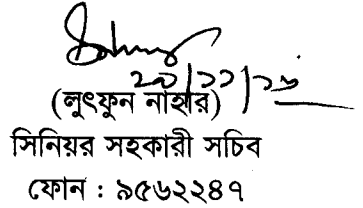 ২০/১১/১৬
(লুৎফুন নাহার)
সিনিয়র সহকারী সচিব
ফোন : ৯৫৬২২৪৭